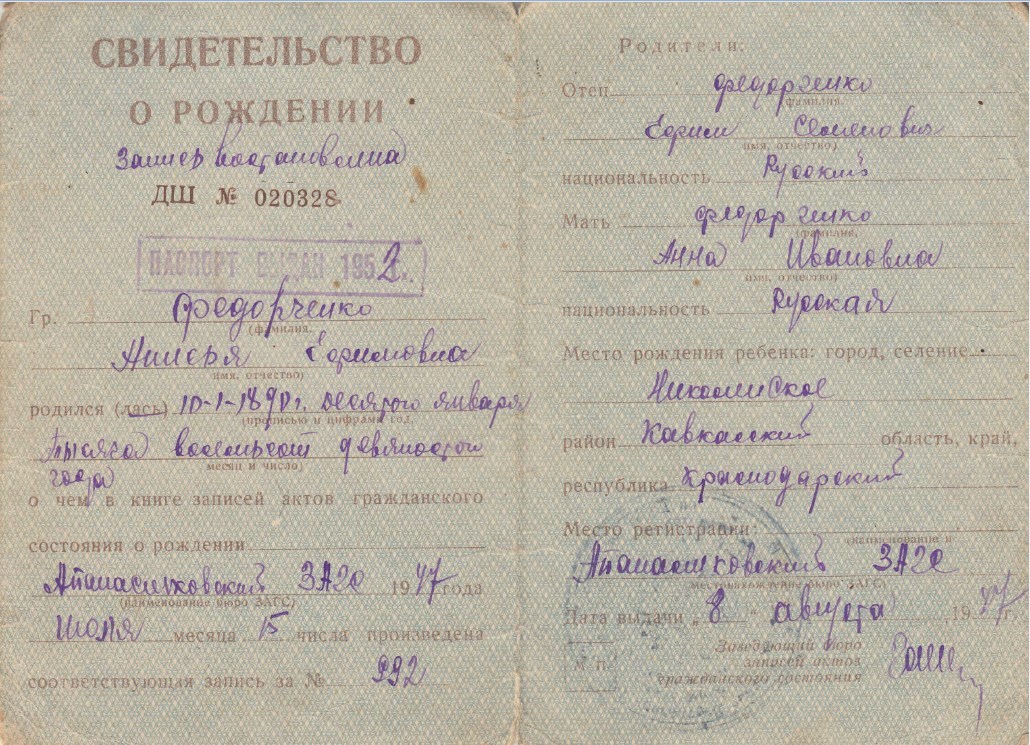 СВИДЕТЕЛЬСТВО
О РОЖДЕНИИ
Запись востановлена
ДШ № 020328
ПАСПОРТ ВЫДАН 1952 г.
Гр. Федорченко
(фамилия,
Ефимовна
имя, отчество)
родился (лась) 10-I-1890 г. десятого января
(прописью и цифрами год,
Тысяча восемьсот девяностого
месяц и число)
года
о чем в книге записей актов гражданского
состояния о рождении
ЗАГС 1947 года
(наименование бюро ЗАГС)
июля месяца 15 числа произведена
соответствующая запись за № 992
Родители:
Отец Федорченко
фамилия,
Ефим Семенович
имя, отчество)
национальность Русский
Мать Федорченко
(фамилия,
Анна Ивановна
имя, отчество)
национальность Русская
Место рождения ребенка: город, селение
район Кавкасский область, край,
республика Краснодарский
Место регистрации:
(наименование и
ЗАГС
местонахождение бюро ЗАГС)
Дата выдачи „8" августа 1947 г.
Заведующий бюро
М. П. записей актов
гражданского состояния